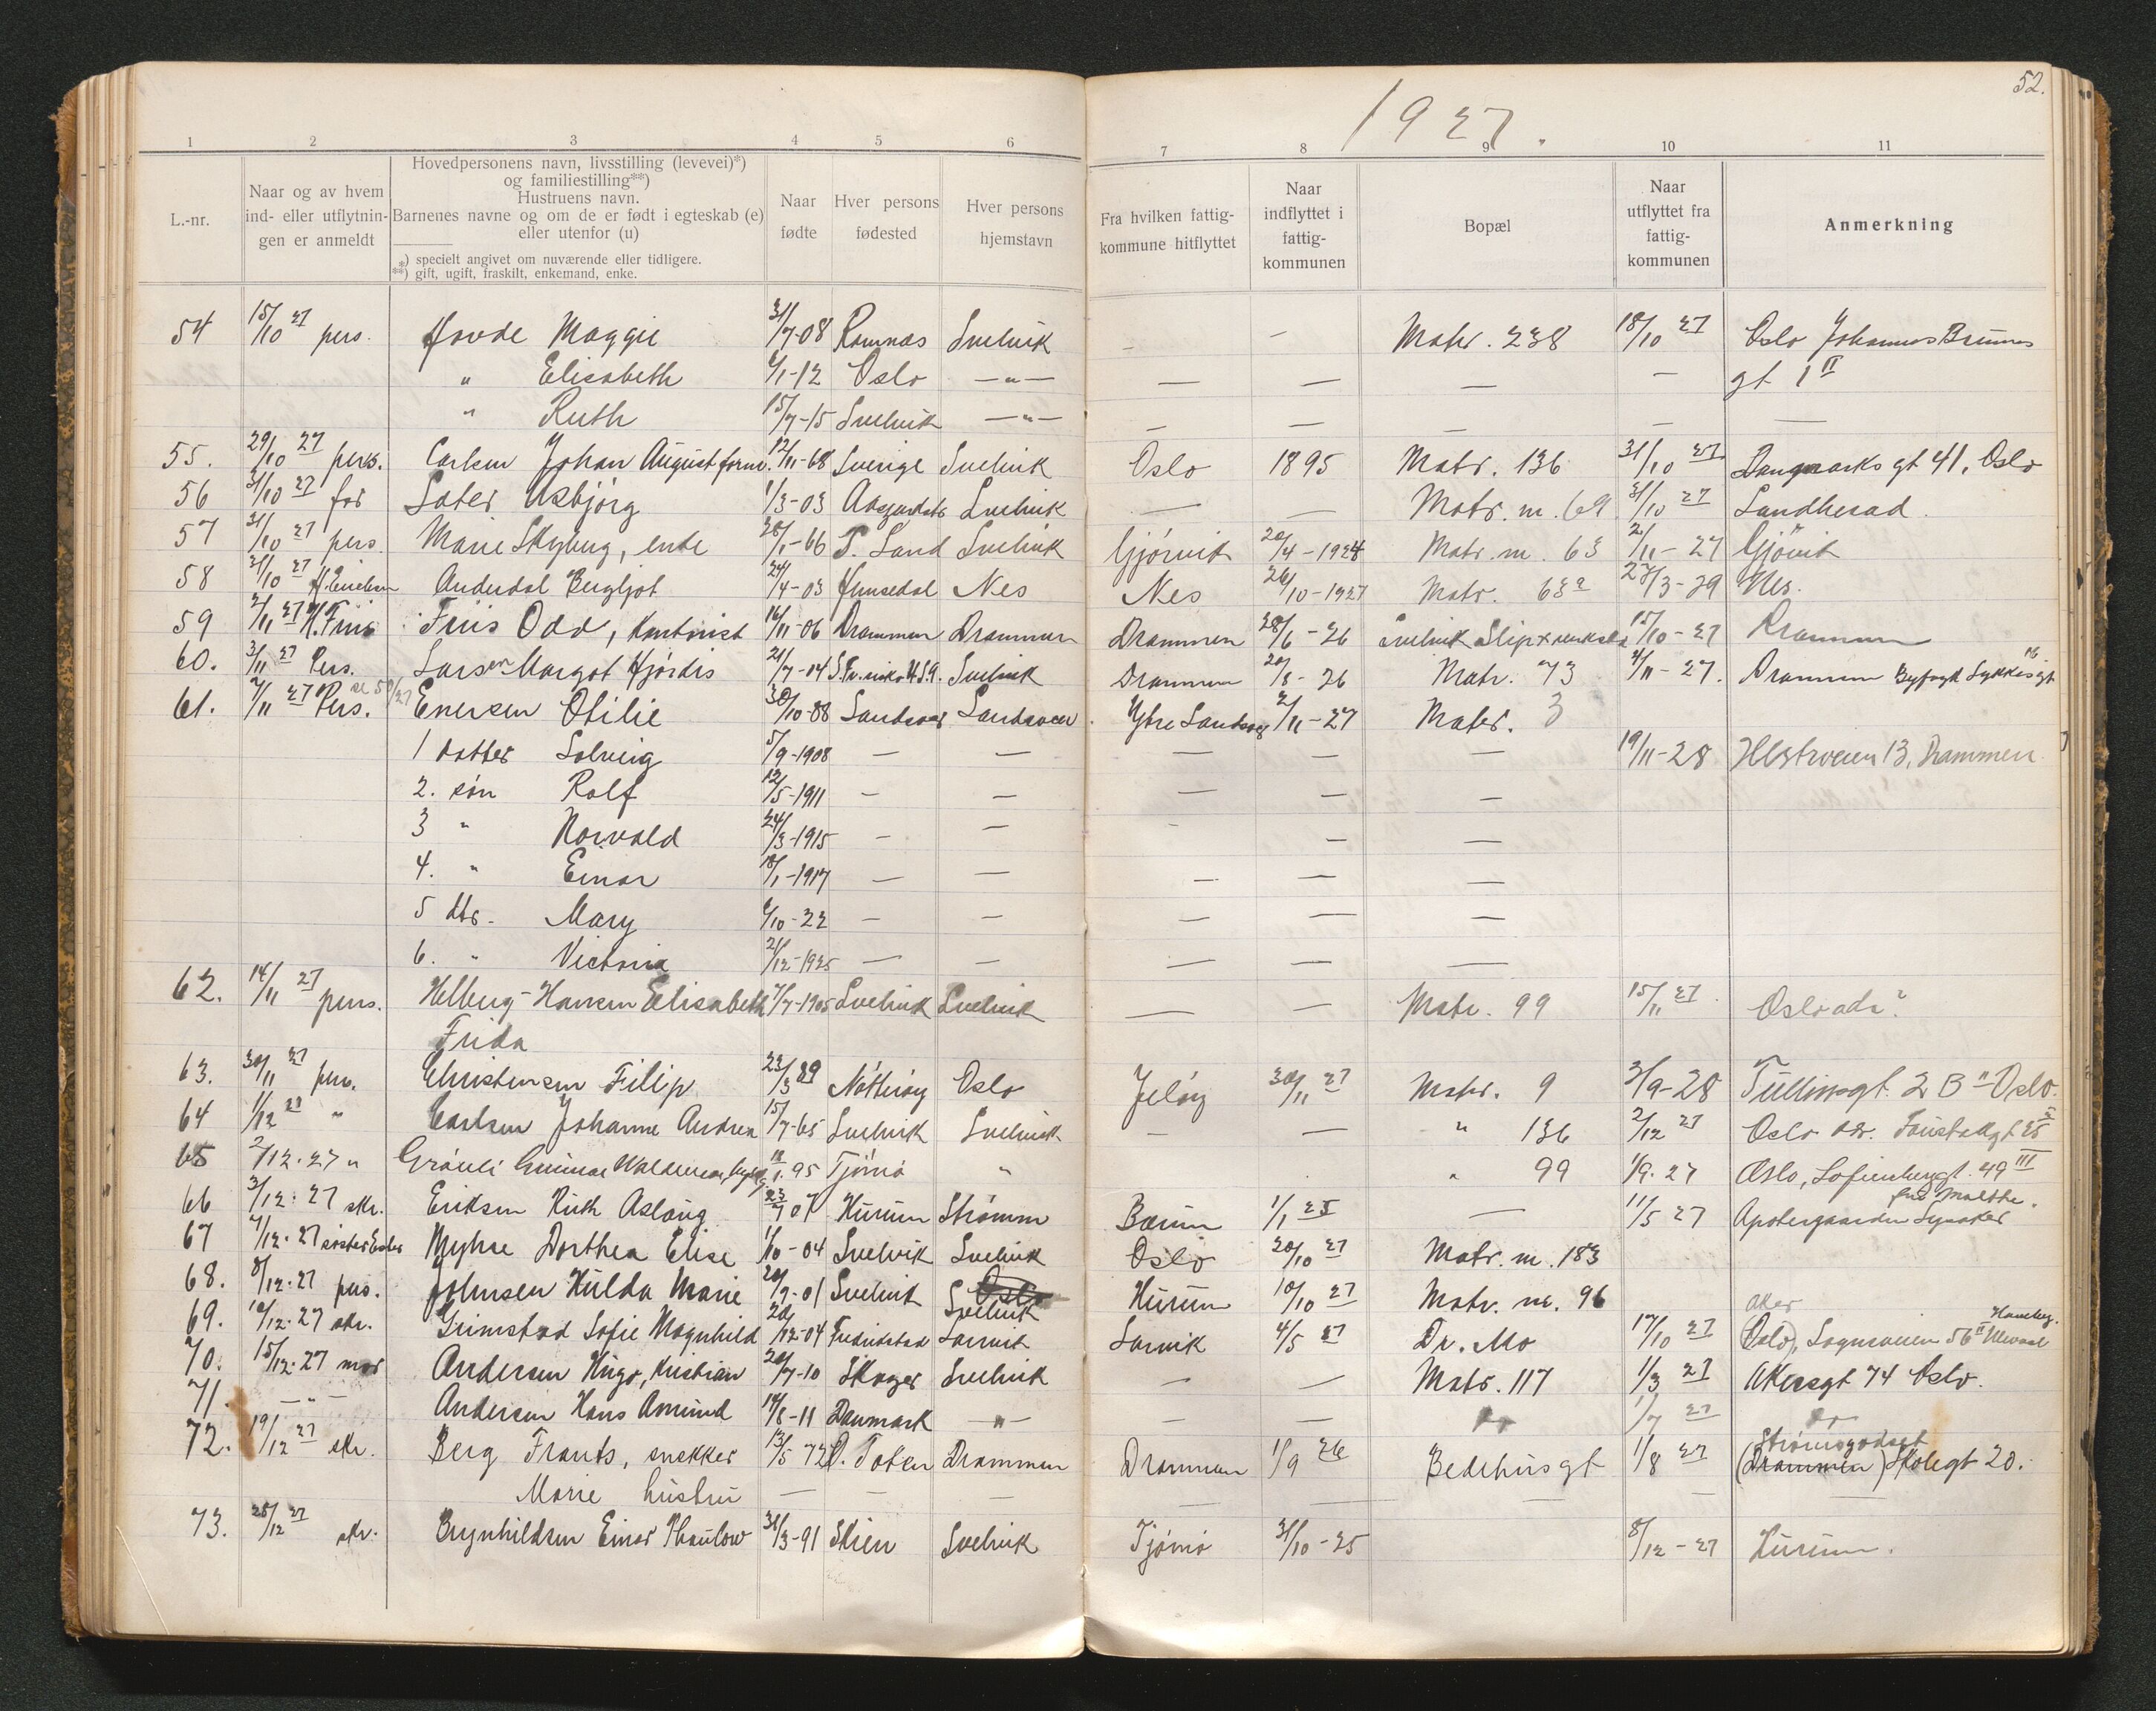 52.
1927.
1 2 3 4 5 6 7 8 9 10 11
L.-nr.
Naar og av hvem
ind- eller utflytnin-
gen er anmeldt
Hovedpersonens navn, livsstilling (levevei)*)
og familiestilling**)
Hustruens navn.
Barnenes navne og om de er født i egteskab (e)
eller utenfor (u)
*) specielt angivet om nuværende eller tidligere.
**) gift, ugift, fraskilt, enkemand, enke.
Naar
fødte
Hver persons
fødested
Hver persons
hjemstavn
Fra hvilken fattig-
kommune hitflyttet
Naar
indflyttet i
fattig-
kommunen
Bopæl
Naar
utflyttet fra
fattig-
kommunen
Anmerkning
54 15/10 27 pers. Hovde Maggie 31/7-08 Ramnæs Svelvik — — Matr. 238 18/10 27 Oslo Johannes Brunns
" Elisabeth 6/1-12 Oslo —"— — — — — gt 1 II
" Ruth 15/7-15 Svelvik —"— — — — — —
55. 29/10 27 pers. Carlsen Johan August form. 12/11-68 Sverige Svelvik Oslo 1895 Matr. 136 31/10 27 Danmarks gt 41, Oslo
56 31/10 27 far Sæter Asbjørg 1/3-03 Aasgardstr Svelvik — — Matr. nr. 69 31/10 27 Sandherad.
57 31/10 27 pers Marie Skyberg, enke 28/1-66 S. Land Svelvik Gjövik 20/4-1924 Matr. nr. 63 2/11-27 Gjövik
58 31/10 27 Anderdal Bergljot 24/4-03 Hemsedal Nes Nes 26/10-1927 Matr. 63a 27/3-29 Nes.
59 2/11 27 H. Friis Friis Odd, Kontorist 16/11-06 Drammen Drammen Drammen 28/6-26 Svelvik Slip & verksted 15/10-27 Drammen
60. 3/11 27 Pers. Larsen Margot Hjördis 21/7-04 Svelvik Drammen 20/8-26 Matr. 73 4/11-27. Drammen Byfogd Lykkes gt 16
61. 7/11 27 Pers. se 50/27 Enersen Otilie 30/10-88 Sandsvær Sandsvær Ytre Sandsvær 2/11-27 Matr. 3
1 datter Solveig 5/9-1908 — — — — — 19/11-28 Ilstrveien 13, Drammen
2. søn Rolf 12/5-1911 — — — — —
3 " Norvald 24/3-1915 — — — — —
4. " Einar 18/1-1917 — — — — —
5 dtr. Mary 6/10-22 — — — — —
6. " Victoria 21/12-1925 — — — — —
62. 14/11 27 pers. Helberg-Hansen Elisabeth 7/7-1905 Svelvik Svelvik — — Matr. 99 15/11 27. Oslo adr?
Frida
63. 30/11 27 pers. Christensen Filip 23/3 89 Nötteröy Oslo Jelöy 30/11 27 Matr. 9 3/9-28 Tullinsgt. 2 B II Oslo.
64 1/12 27 " Carlsen Johanne Andrea 15/7-65 Svelvik Svelvik — — " 136 2/12 27 Oslo adr. Fougstadgt 25
65 2/12.27 " Gröuli Gunnar Waldemar 95 Tjömö " " 99 1/9.27 Oslo, Sofienberggt. 49 III
66 3/12.27 skr. Eriksen Ruth Aslaug 23/7 07 Hurum Strömm Bærum 1/1 25 — 11/5 27 Apotergaarden Lysaker
67 7/12.27 Myhre Dorthea Elise 1/10-04 Svelvik Svelvik Oslo 20/10 27 Matr. nr. 183
68. 8/12.27 pers. Johnsen Hulda Marie 20/2-01 Svelvik Oslo Svelvik Hurum 10/10 27 Matr. nr. 96
69. 10/12.27 skr. Grimstad Sofie Magnhild 20/12-04 Fredrikstad Larvik Larvik 4/5 27 Dr. Mo 17/10 27 Aker (Oslo), Sognsveien 56 II Ulevaal Haveby.
70. 15/12.27 mor Andersen Hugo, Kristian 20/7-10 Skoger Svelvik — — Matr. 117 1/3 27 Akersgt 74 Oslo.
71. —"— Andersen Hans Amund 14/8-11 Danmark —"— — — 1/7 27
72. 19/12 27 skr. Berg Frants, snekker 13/5 72 Ø. Toten Drammen Drammen 1/9 26 Bedehusgt 1/8 27 (Drammen) Strømsgodset Skolegt 20.
Marie hustru — — — — — — — —
73. 28/12 27 skr. Brynhildsen Einar Thaulow 31/3-91 Skien Svelvik Tjömö 31/10-25 8/12-27 Hurum.